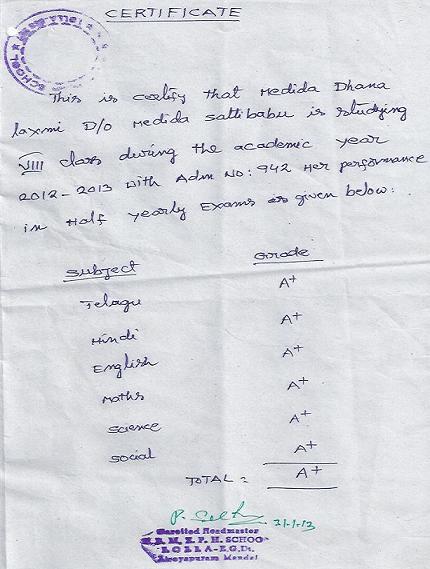 CERTIFICATE
SCHOOL
This is certify that Medida Dhana
laxmi D/o Medida sattibabu is studying
VIII class during the academic year
2012-2013 With Adm No: 942 Her performance
in Half Yearly Exams as given below:
Subject Grade
Telagu A+
Hindi A+
English A+
Maths A+
Science A+
Social A+
TOTAL = A+
21-1-13
Gazetted Headmaster
Z. P. H. SCHOO
LOLLA-E.G.Dt.
Atreyapuram Mandal